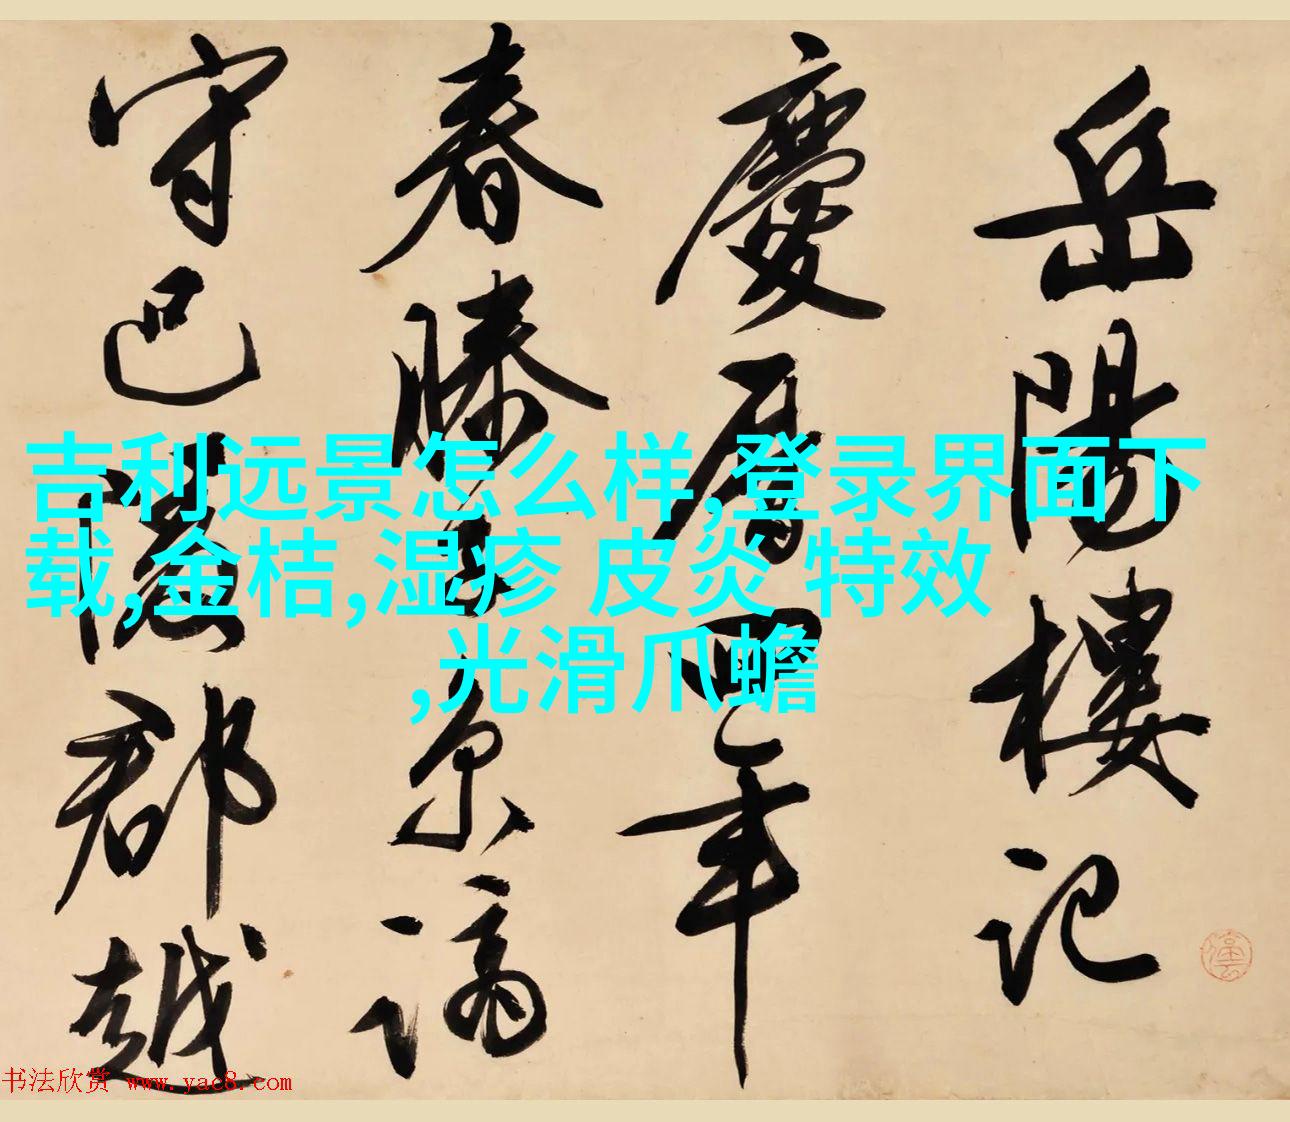 岳陽樓記
慶曆四年
春滕子京謫
守巴陵郡越
吉利远景怎么样,登录界面下
载,金桔,湿疹 皮炎 特效
,光滑爪蟾
书法欣赏 www.yac8.com